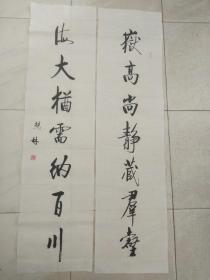 嶽高尚靜藏羣壑
海大猶需納百川